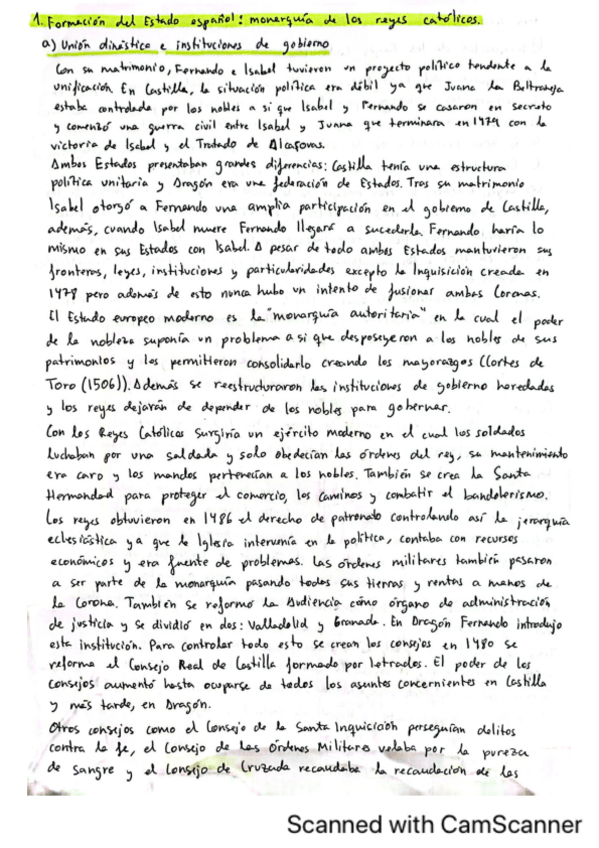 1. Formación del Estado español: monarquía de los reyes católicos.
a) Unión dinástica e instituciones de gobierno
Con su matrimonio, Fernando e Isabel tuvieron un proyecto político tendente a la
unificación En Castilla, la situación política era débil ya que Juana la Beltraneja
estaba controlada por los nobles a si que Isabel y Fernando se casaron en secreto
y comenzó una guerra civil entre Isabel y Juana que terminara en 1479 con la
victoria de Isabel y el Tratado de Alcaçovas.
Ambos Estados presentaban grandes diferencias: Castilla tenía una estructura
política unitaria y Aragón era una federación de Estados. Tras su matrimonio
Isabel otorgó a Fernando una amplia participación en el gobierno de Castilla,
además, cuando Isabel muere Fernando llegará a sucederla. Fernando haría lo
mismo en sus Estados con Isabel. A pesar de todo ambos Estados mantuvieron sus
fronteras, leyes, instituciones y particularidades excepto la Inquisición creada en
1478 pero además de esto nunca hubo un intento de fusionar ambas Coronas.
El Estado europeo moderno es la "monarquía autoritaria" en la cual el poder
de la nobleza suponía un problema a si que desposeyeron a los nobles de sus
patrimonios y les permitieron consolidarlo creando los mayorazgos (Cortes de
Toro (1506)). Además se reestructuraron las instituciones de gobierno heredadas
y los reyes dejarán de depender de los nobles para gobernar.
Con los Reyes Católicos surgiría un ejército moderno en el cual los soldados
luchaban por una soldada y solo obedecían las órdenes del rey, su mantenimiento
era caro y los mandos pertenecían a los nobles. También se crea la Santa
Hermandad para proteger el comercio, los caminos y combatir el bandolerismo.
Los reyes obtuvieron en 1486 el derecho de patronato controlando así la jerarquía
eclesiástica ya que la Iglesia intervenía en la política, contaba con recursos
económicos y era fuente de problemas. Las órdenes militares también pasaron
a ser parte de la monarquía pasando todas sus tierras y rentas a manos de
la Corona. También se reformó la Audiencia como órgano de administración
de justicia y se dividió en dos: Valladolid y Granada. En Aragón Fernando introdujo
esta institución. Para controlar todo esto se crean los consejos en 1480 se
reforma el Consejo Real de Castilla formado por letrados. El poder de los
consejos aumentó hasta ocuparse de todos los asuntos concernientes en Castilla
y más tarde, en Aragón.
Otros consejos como el Consejo de la Santa Inquicición perseguían delitos
contra la fe, el Consejo de las Órdenes Militares velaba por la pureza
de sangre y el Consejo de Cruzada recaudaba la recaudación de las
Scanned with CamScanner